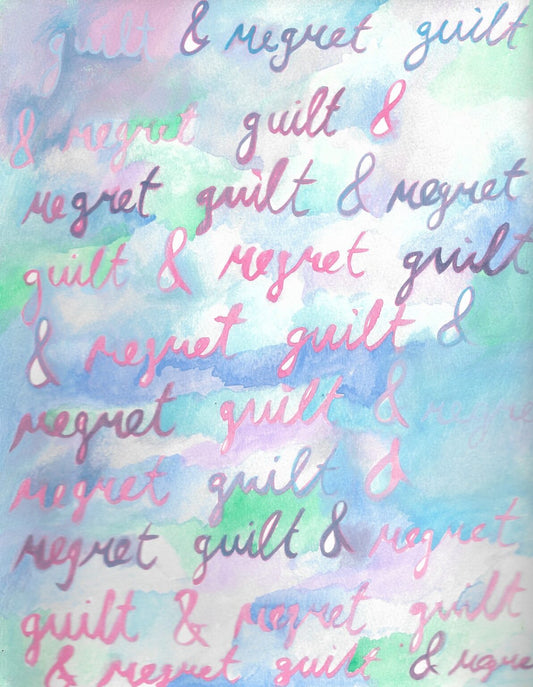 guilt & regret guilt
& regret guilt &
regret guilt & regret
guilt & regret guilt
& regret guilt &
regret guilt & regre
regret guilt &
regret guilt & regret
guilt & regret guilt
& regret guilt & regre